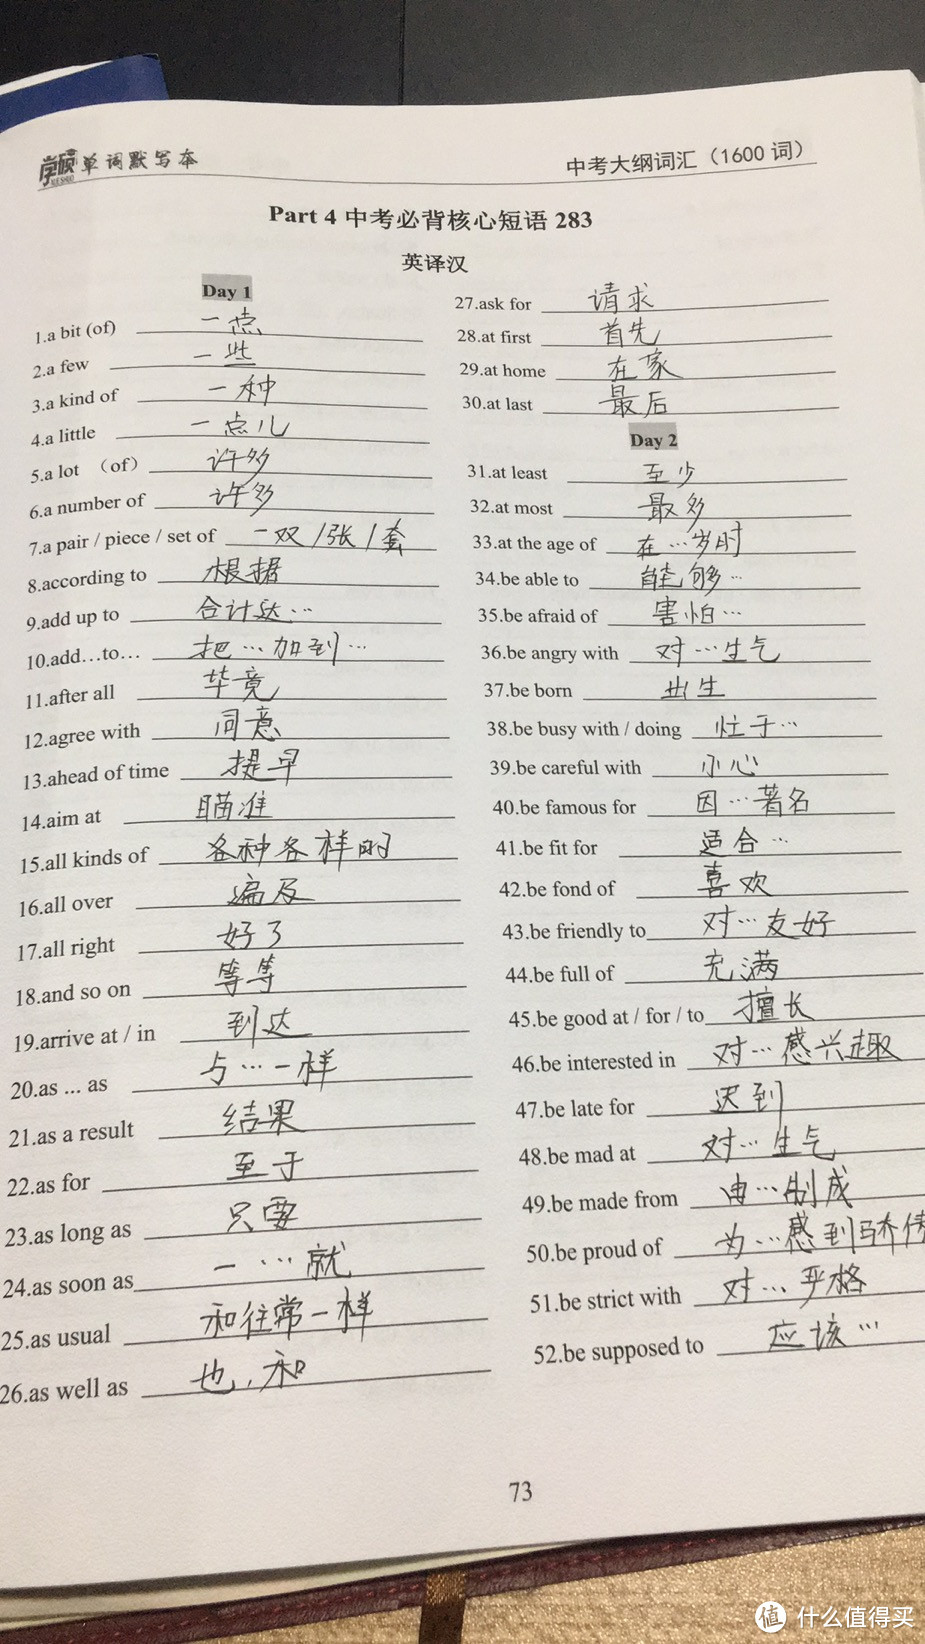 学硕 单词默写本
XUESHUO
中考大纲词汇（1600 词）
Part 4 中考必背核心短语 283
英译汉
Day 1
1.a bit (of) 一点
2.a few 一些
3.a kind of 一种
4.a little 一点儿
5.a lot （of） 许多
6.a number of 许多
7.a pair / piece / set of 一双/张/套
8.according to 根据
9.add up to 合计达…
10.add…to… 把…加到…
11.after all 毕竟
12.agree with 同意
13.ahead of time 提早
14.aim at 瞄准
15.all kinds of 各种各样的
16.all over 遍及
17.all right 好了
18.and so on 等等
19.arrive at / in 到达
20.as ... as 与…一样
21.as a result 结果
22.as for 至于
23.as long as 只要
24.as soon as 一…就
25.as usual 和往常一样
26.as well as 也,和
27.ask for 请求
28.at first 首先
29.at home 在家
30.at last 最后
Day 2
31.at least 至少
32.at most 最多
33.at the age of 在…岁时
34.be able to 能够…
35.be afraid of 害怕…
36.be angry with 对…生气
37.be born 出生
38.be busy with / doing 忙于…
39.be careful with 小心
40.be famous for 因…著名
41.be fit for 适合…
42.be fond of 喜欢
43.be friendly to 对…友好
44.be full of 充满
45.be good at / for / to 擅长
46.be interested in 对…感兴趣
47.be late for 迟到
48.be mad at 对…生气
49.be made from 由…制成
50.be proud of 为…感到骄傲
51.be strict with 对…严格
52.be supposed to 应该…
73
值 什么值得买